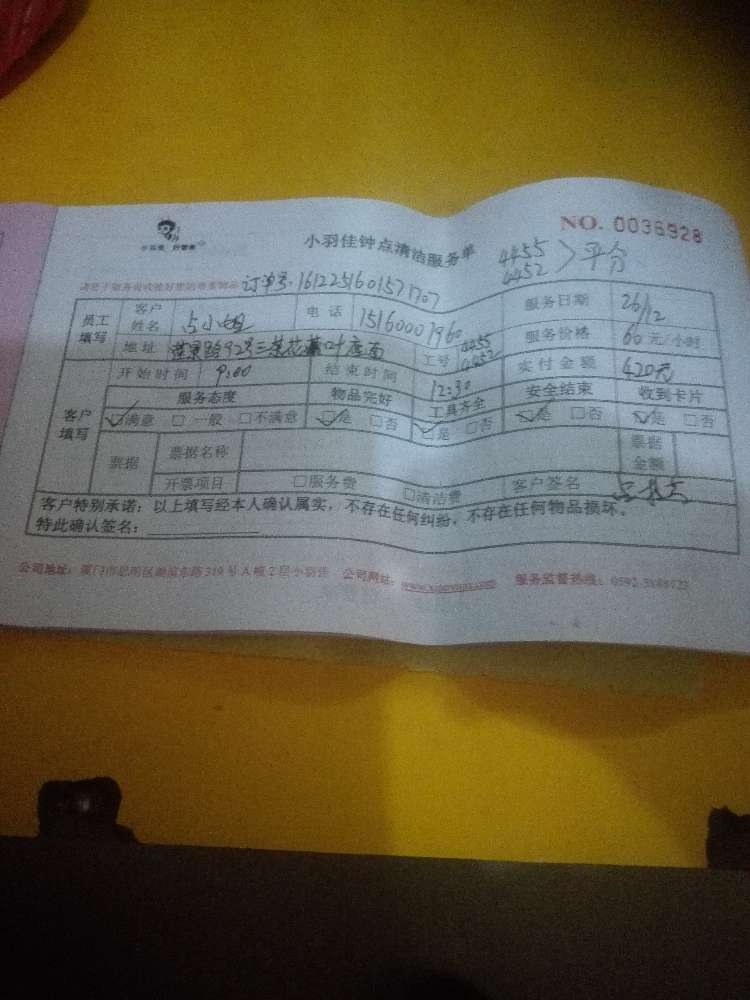 NO. 0036928
小羽佳 好管家
小羽佳钟点清洁服务单
4455
4452 > 平分
订单号:1612251601571707
员工填写 客户姓名 小姐 电话 15160001960 服务日期 26/12
地址 92号三 工号 4455 4452 服务价格 60元/小时
客户填写 开始时间 9:00 结束时间 12:30 实付金额 420元
服务态度 物品完好 工具齐全 安全结束 收到卡片
☑满意 □一般 □不满意 ☑是 □否 ☑是 □否 ☑是 □否 ☑是 □否
票据 票据名称 票据金额
开票项目 □服务费 □清洁费 客户签名
客户特别承诺:以上填写经本人确认属实,不存在任何纠纷,不存在任何物品损坏。
特此确认签名:
公司地址:厦门市思明区 319号A幢2层小羽佳 公司网站: 服务监督热线: